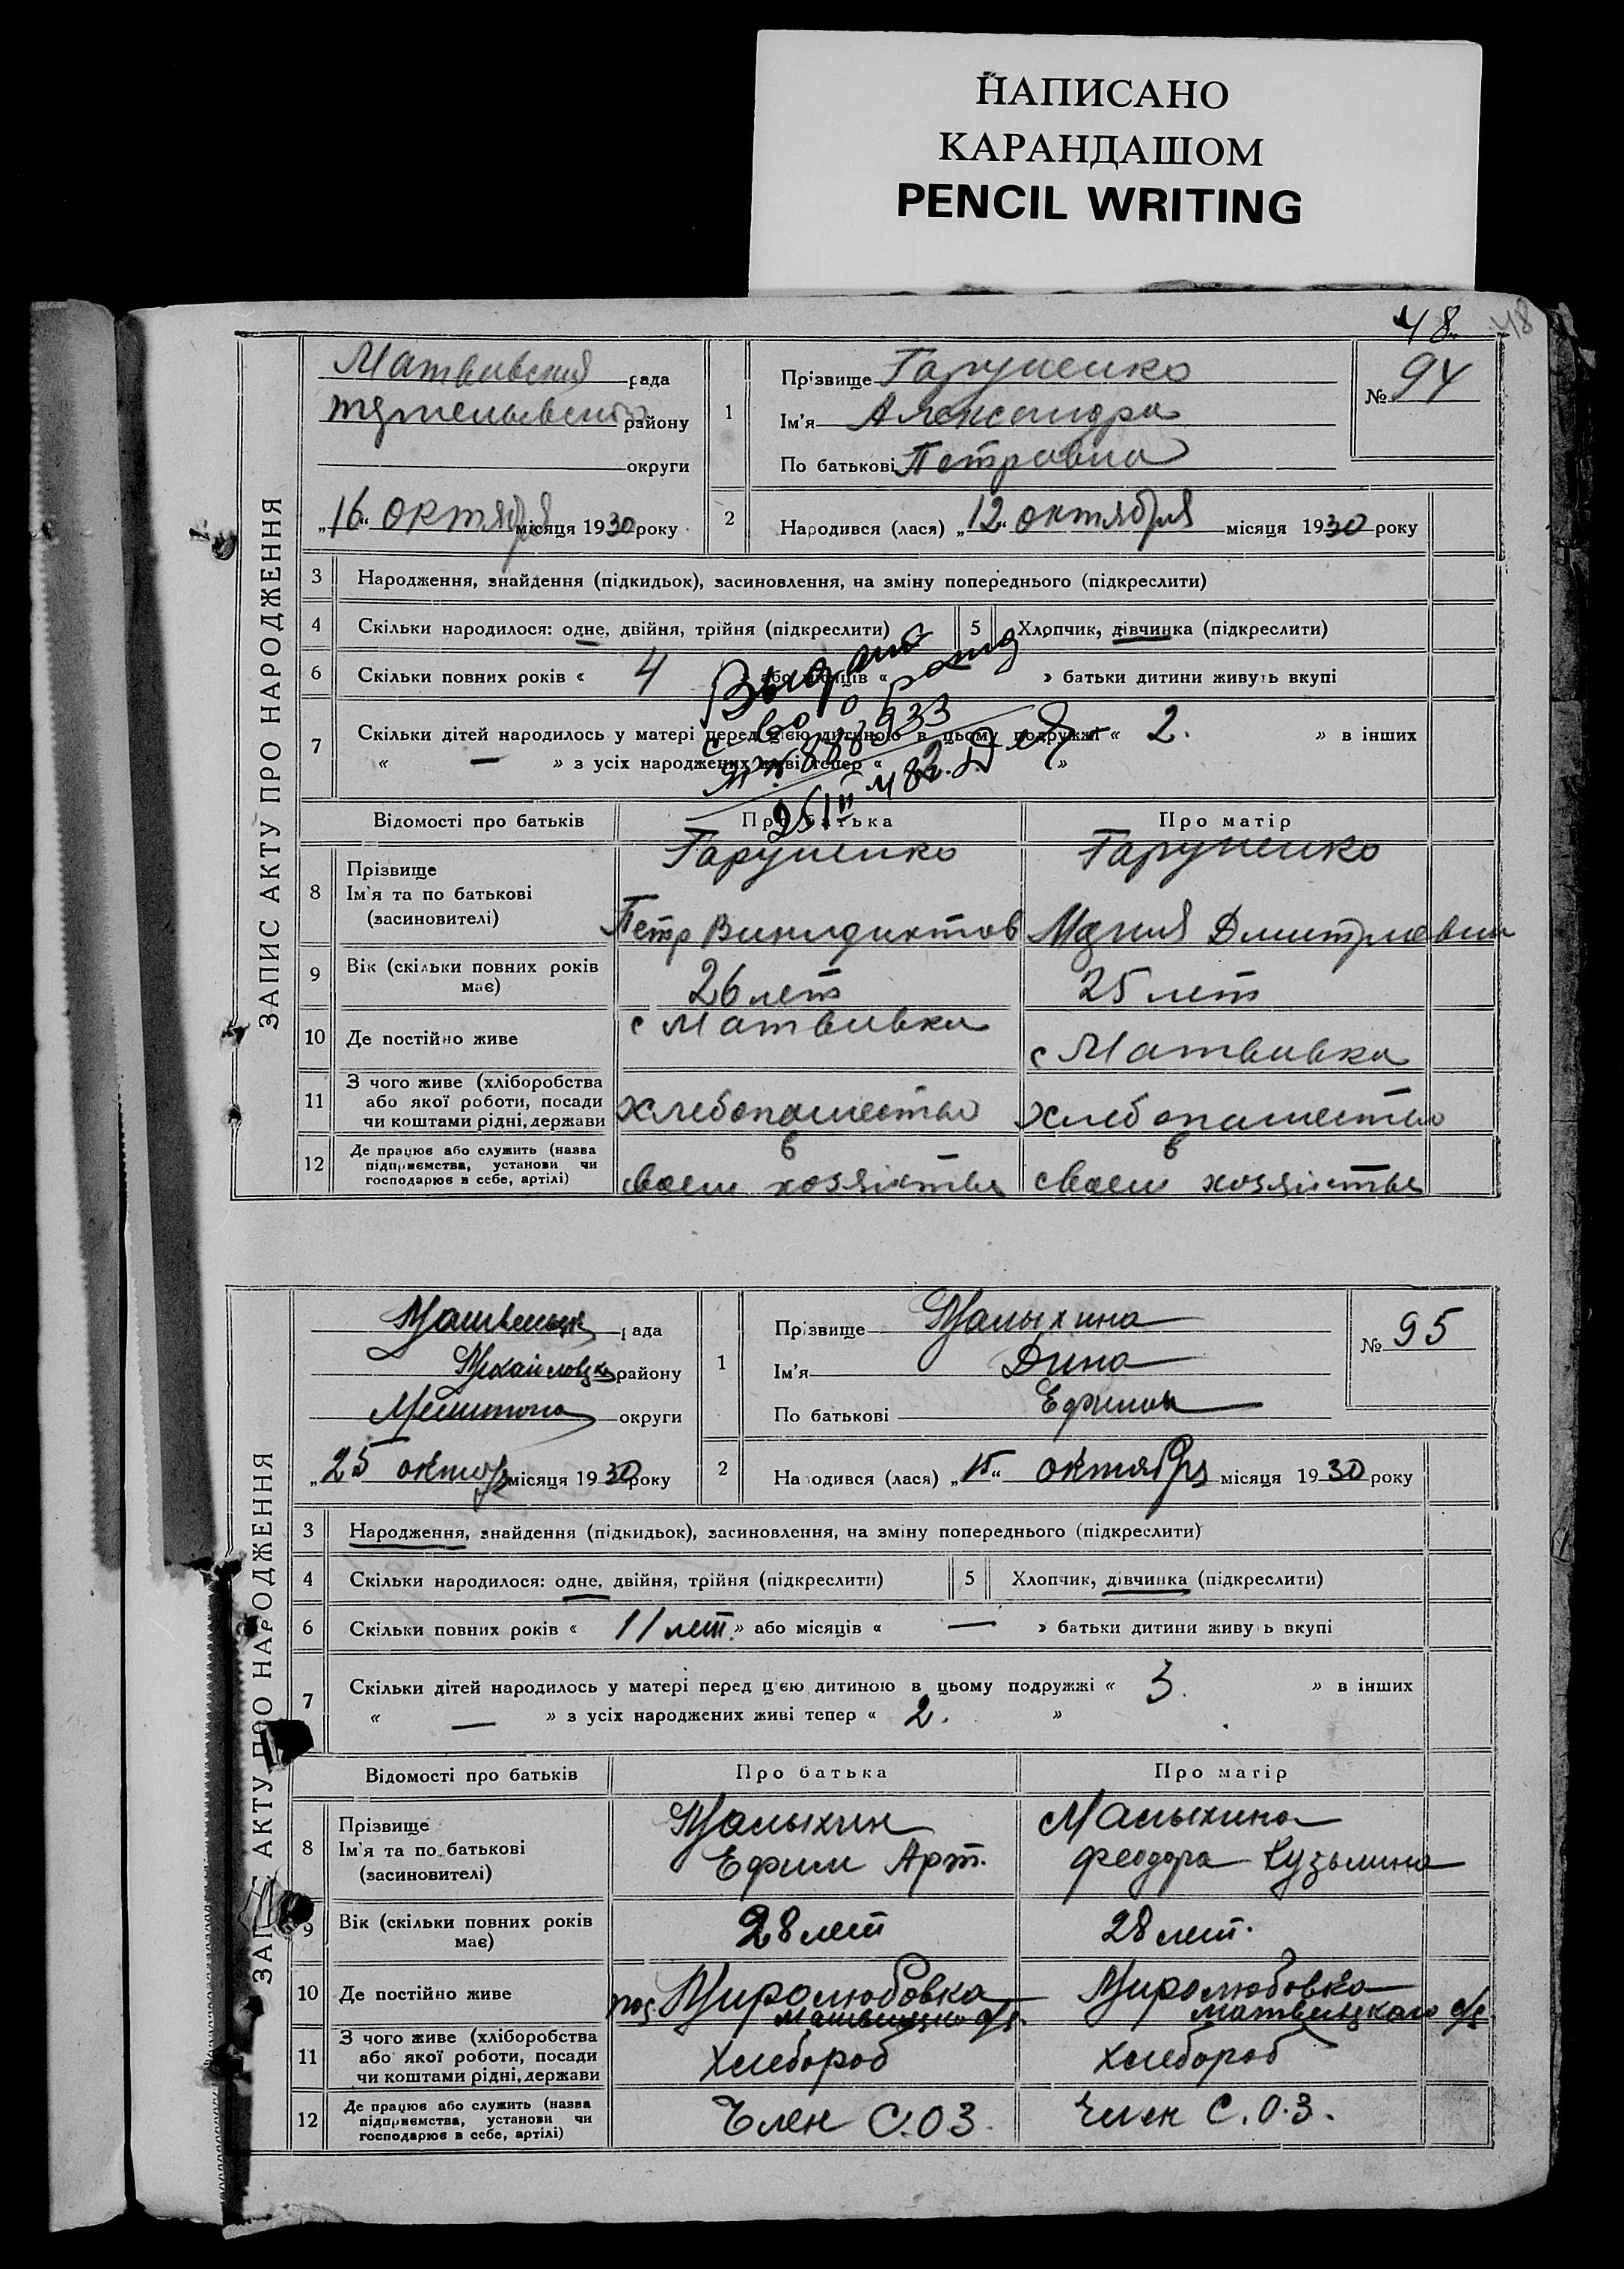 НАПИСАНО
КАРАНДАШОМ
PENCIL WRITING
48
48
ЗАПИС АКТУ ПРО НАРОДЖЕННЯ
Матвивский рада
району
округи
„16“ октября місяця 1930 року
1
Прізвище Гаруненко
Ім'я Александра
По батькові Петровна
№ 94
2
Народився (лася) „12“ октября місяця 1930 року
3 Народження, знайдення (підкидьок), засиновлення, на зміну попереднього (підкреслити)
4 Скільки народилося: одне, двійня, трійня (підкреслити) 5 Хлопчик, дівчинка (підкреслити)
6 Скільки повних років « 4 » або місяців « » батьки дитини живуть вкупі
7 Скільки дітей народилось у матері перед цією дитиною в цьому подружжі « 2. » в інших
« — » з усіх народжених живі тепер « 2. »
Відомості про батьків Про батька Про матір
8 Прізвище
Ім'я та по батькові
(засиновителі)
Гаруненко
Петр Винидиктов
Гаруненко
Мария Дмитриевн
9 Вік (скільки повних років має) 26 лет 25 лет
10 Де постійно живе с Матвивка с Матвивка
11 З чого живе (хліборобства
або якої роботи, посади
чи коштами рідні, держави
хлебопашество хлебопашество
12 Де працює або служить (назва
підприємства, установи чи
господарює в себе, артілі)
в
своем хозяйстве
в
своем хозяйстве
ЗАПИС АКТУ ПРО НАРОДЖЕННЯ
рада
Михайловск району
округи
„25 октяб місяця 1930 року
1
Прізвище Малыхина
Ім'я Дина
По батькові Ефимов
№ 95
2
Народився (лася) „15“ октября місяця 1930 року
3 Народження, знайдення (підкидьок), засиновлення, на зміну попереднього (підкреслити)
4 Скільки народилося: одне, двійня, трійня (підкреслити) 5 Хлопчик, дівчинка (підкреслити)
6 Скільки повних років « 11 лет » або місяців « — » батьки дитини живуть вкупі
7 Скільки дітей народилось у матері перед цією дитиною в цьому подружжі « 3. » в інших
« — » з усіх народжених живі тепер « 2. »
Відомості про батьків Про батька Про матір
8 Прізвище
Ім'я та по батькові
(засиновителі)
Малыхин
Ефим Арт.
Малыхина
Феодора Кузьмина
9 Вік (скільки повних років має) 28 лет 28 лет.
10 Де постійно живе пос Миролюбовка Миролюбовка
Матвеицкого с/с.
11 З чого живе (хліборобства
або якої роботи, посади
чи коштами рідні, держави
Хлебороб Хлебороб
12 Де працює або служить (назва
підприємства, установи чи
господарює в себе, артілі)
Член С.О.З. Член С.О.З.